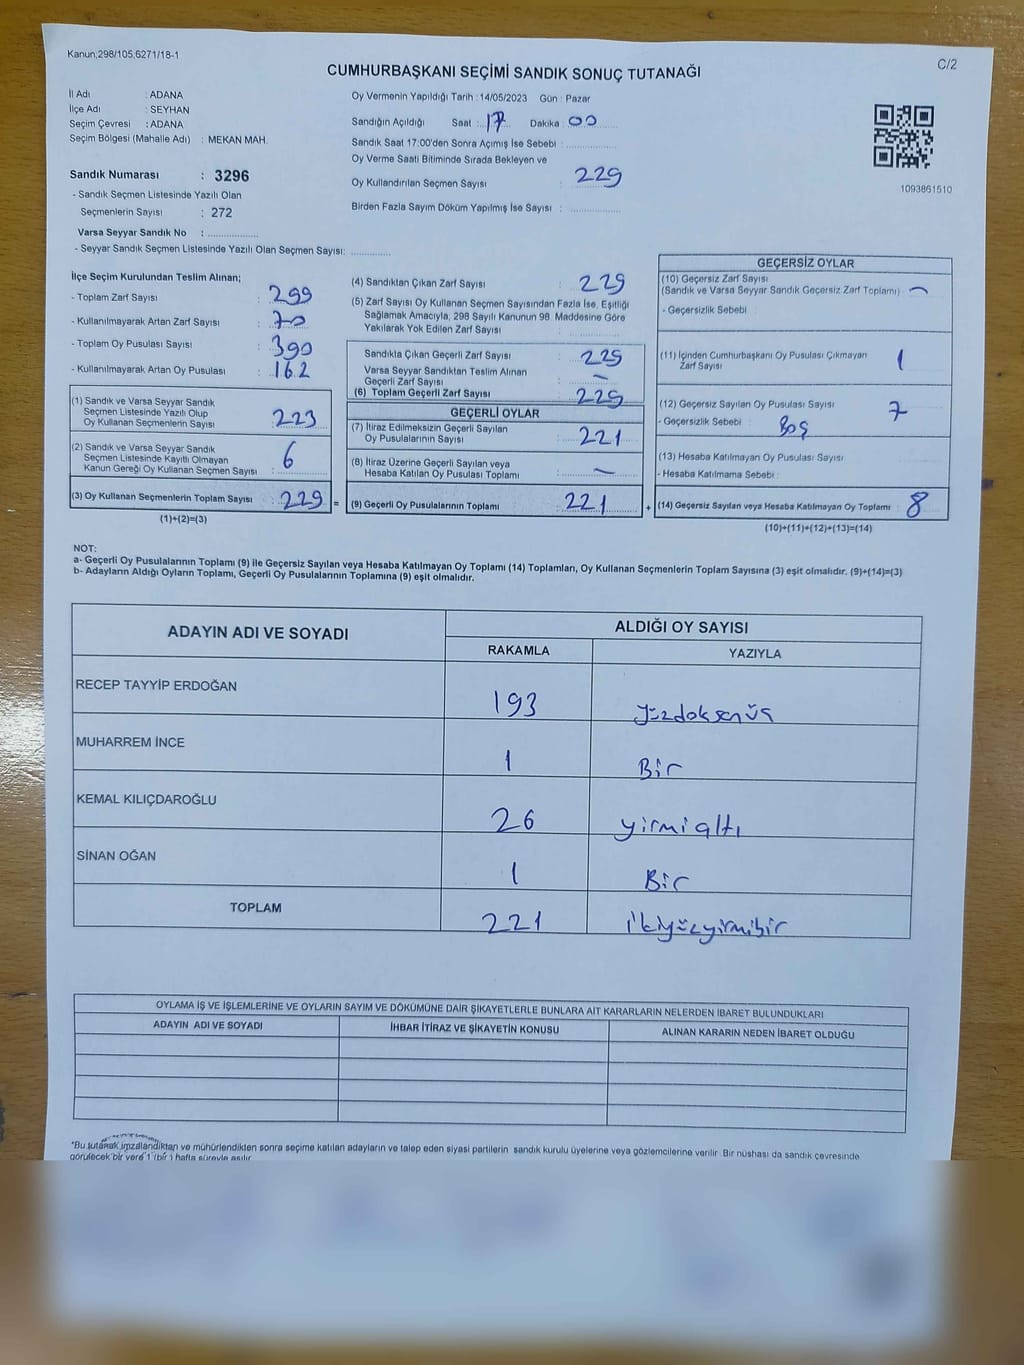 Kanun;298/105,6271/18-1
C/2
CUMHURBAŞKANI SEÇİMİ SANDIK SONUÇ TUTANAĞI
İl Adı : ADANA
İlçe Adı : SEYHAN
Seçim Çevresi : ADANA
Seçim Bölgesi (Mahalle Adı) : MEKAN MAH.
Sandık Numarası : 3296
- Sandık Seçmen Listesinde Yazılı Olan
Seçmenlerin Sayısı : 272
Varsa Seyyar Sandık No :
- Seyyar Sandık Seçmen Listesinde Yazılı Olan Seçmen Sayısı:
Oy Vermenin Yapıldığı Tarih : 14/05/2023 Gün : Pazar
Sandığın Açıldığı Saat : 17 Dakika : 00
Sandık Saat 17:00'den Sonra Açımış İse Sebebi :
Oy Verme Saati Bitiminde Sırada Bekleyen ve
Oy Kullandırılan Seçmen Sayısı : 229
Birden Fazla Sayım Döküm Yapılmış İse Sayısı :
1093861510
İlçe Seçim Kurulundan Teslim Alınan;
- Toplam Zarf Sayısı : 299
- Kullanılmayarak Artan Zarf Sayısı : 70
- Toplam Oy Pusulası Sayısı : 390
- Kullanılmayarak Artan Oy Pusulası : 162
(1) Sandık ve Varsa Seyyar Sandık
Seçmen Listesinde Yazılı Olup
Oy Kullanan Seçmenlerin Sayısı : 223
(2) Sandık ve Varsa Seyyar Sandık
Seçmen Listesinde Kayıtlı Olmayan
Kanun Gereği Oy Kullanan Seçmen Sayısı : 6
(3) Oy Kullanan Seçmenlerin Toplam Sayısı : 229 =
(1)+(2)=(3)
(4) Sandıktan Çıkan Zarf Sayısı : 229
(5) Zarf Sayısı Oy Kullanan Seçmen Sayısından Fazla İse, Eşitliği
Sağlamak Amacıyla, 298 Sayılı Kanunun 98. Maddesine Göre
Yakılarak Yok Edilen Zarf Sayısı :
Sandıkta Çıkan Geçerli Zarf Sayısı : 229
Varsa Seyyar Sandıktan Teslim Alınan
Geçerli Zarf Sayısı : —
(6) Toplam Geçerli Zarf Sayısı : 229
GEÇERLİ OYLAR
(7) İtiraz Edilmeksizin Geçerli Sayılan
Oy Pusulalarının Sayısı : 221
(8) İtiraz Üzerine Geçerli Sayılan veya
Hesaba Katılan Oy Pusulası Toplamı : —
(9) Geçerli Oy Pusulalarının Toplamı : 221 +
GEÇERSİZ OYLAR
(10) Geçersiz Zarf Sayısı
(Sandık ve Varsa Seyyar Sandık Geçersiz Zarf Toplamı) : —
- Geçersizlik Sebebi :
(11) İçinden Cumhurbaşkanı Oy Pusulası Çıkmayan
Zarf Sayısı : 1
(12) Geçersiz Sayılan Oy Pusulası Sayısı : 7
- Geçersizlik Sebebi : Boş
(13) Hesaba Katılmayan Oy Pusulası Sayısı :
- Hesaba Katılmama Sebebi :
(14) Geçersiz Sayılan veya Hesaba Katılmayan Oy Toplamı : 8
(10)+(11)+(12)+(13)=(14)
NOT:
a- Geçerli Oy Pusulalarının Toplamı (9) ile Geçersiz Sayılan veya Hesaba Katılmayan Oy Toplamı (14) Toplamları, Oy Kullanan Seçmenlerin Toplam Sayısına (3) eşit olmalıdır. (9)+(14)=(3)
b- Adayların Aldığı Oyların Toplamı, Geçerli Oy Pusulalarının Toplamına (9) eşit olmalıdır.
ADAYIN ADI VE SOYADI
ALDIĞI OY SAYISI
RAKAMLA YAZIYLA
RECEP TAYYİP ERDOĞAN 193 yüzdoksanüç
MUHARREM İNCE 1 Bir
KEMAL KILIÇDAROĞLU 26 yirmialtı
SİNAN OĞAN 1 Bir
TOPLAM 221 ikiyüzyirmibir
OYLAMA İŞ VE İŞLEMLERİNE VE OYLARIN SAYIM VE DÖKÜMÜNE DAİR ŞİKAYETLERLE BUNLARA AİT KARARLARIN NELERDEN İBARET BULUNDUKLARI
ADAYIN ADI VE SOYADI İHBAR İTİRAZ VE ŞİKAYETİN KONUSU ALINAN KARARIN NEDEN İBARET OLDUĞU
*Bu tutanak imzalandıktan ve mühürlendikten sonra seçime katılan adayların ve talep eden siyasi partilerin sandık kurulu üyelerine veya gözlemcilerine verilir. Bir nüshası da sandık çevresinde
görülecek bir yere 1 (bir) hafta süreyle asılır.